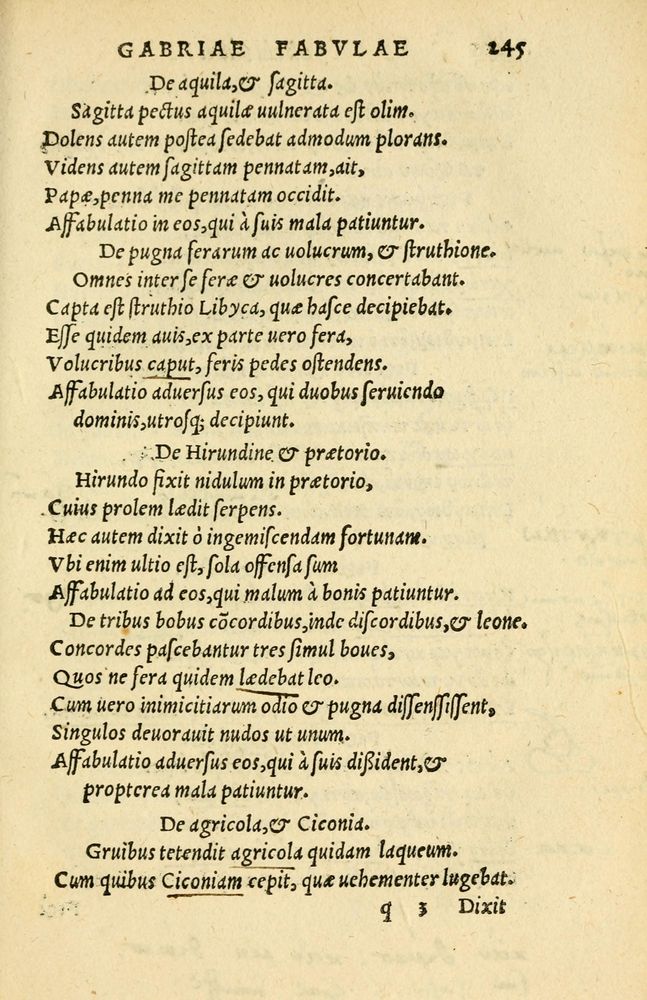 GABRIAE FABVLAE 245
De aquila,& sagitta.
Sagitta pectus aquilæ uulnerata est olim.
Dolens autem postea sedebat admodum plorans.
Videns autem sagittam pennatam,ait,
Papæ,penna me pennatam occidit.
Affabulatio in eos,qui à suis mala patiuntur.
De pugna ferarum ac uolucrum, & struthione.
Omnes inter se feræ & uolucres concertabant.
Capta est struthio Libyca, quæ hasce decipiebat.
Esse quidem auis,ex parte uero fera,
Volucribus caput, feris pedes ostendens.
Affabulatio aduersus eos, qui duobus seruiendo
dominis,utrosq; decipiunt.
De Hirundine & prætorio.
Hirundo fixit nidulum in prætorio,
Cuius prolem lædit serpens.
Hæc autem dixit ò ingemiscendam fortunam.
Vbi enim ultio est, sola offensa sum
Affabulatio ad eos,qui malum à bonis patiuntur.
De tribus bobus cõcordibus,inde discordibus,& leone.
Concordes pascebantur tres simul boues,
Quos ne fera quidem lædebat leo.
Cum uero inimicitiarum odio & pugna dissenssissent,
Singulos deuorauit nudos ut unum.
Affabulatio aduersus eos,qui à suis dißident,&
propterea mala patiuntur.
De agricola,& Ciconia.
Gruibus tetendit agricola quidam laqueum.
Cum quibus Ciconiam cepit, quæ uehementer lugebat.
q 3 Dixit